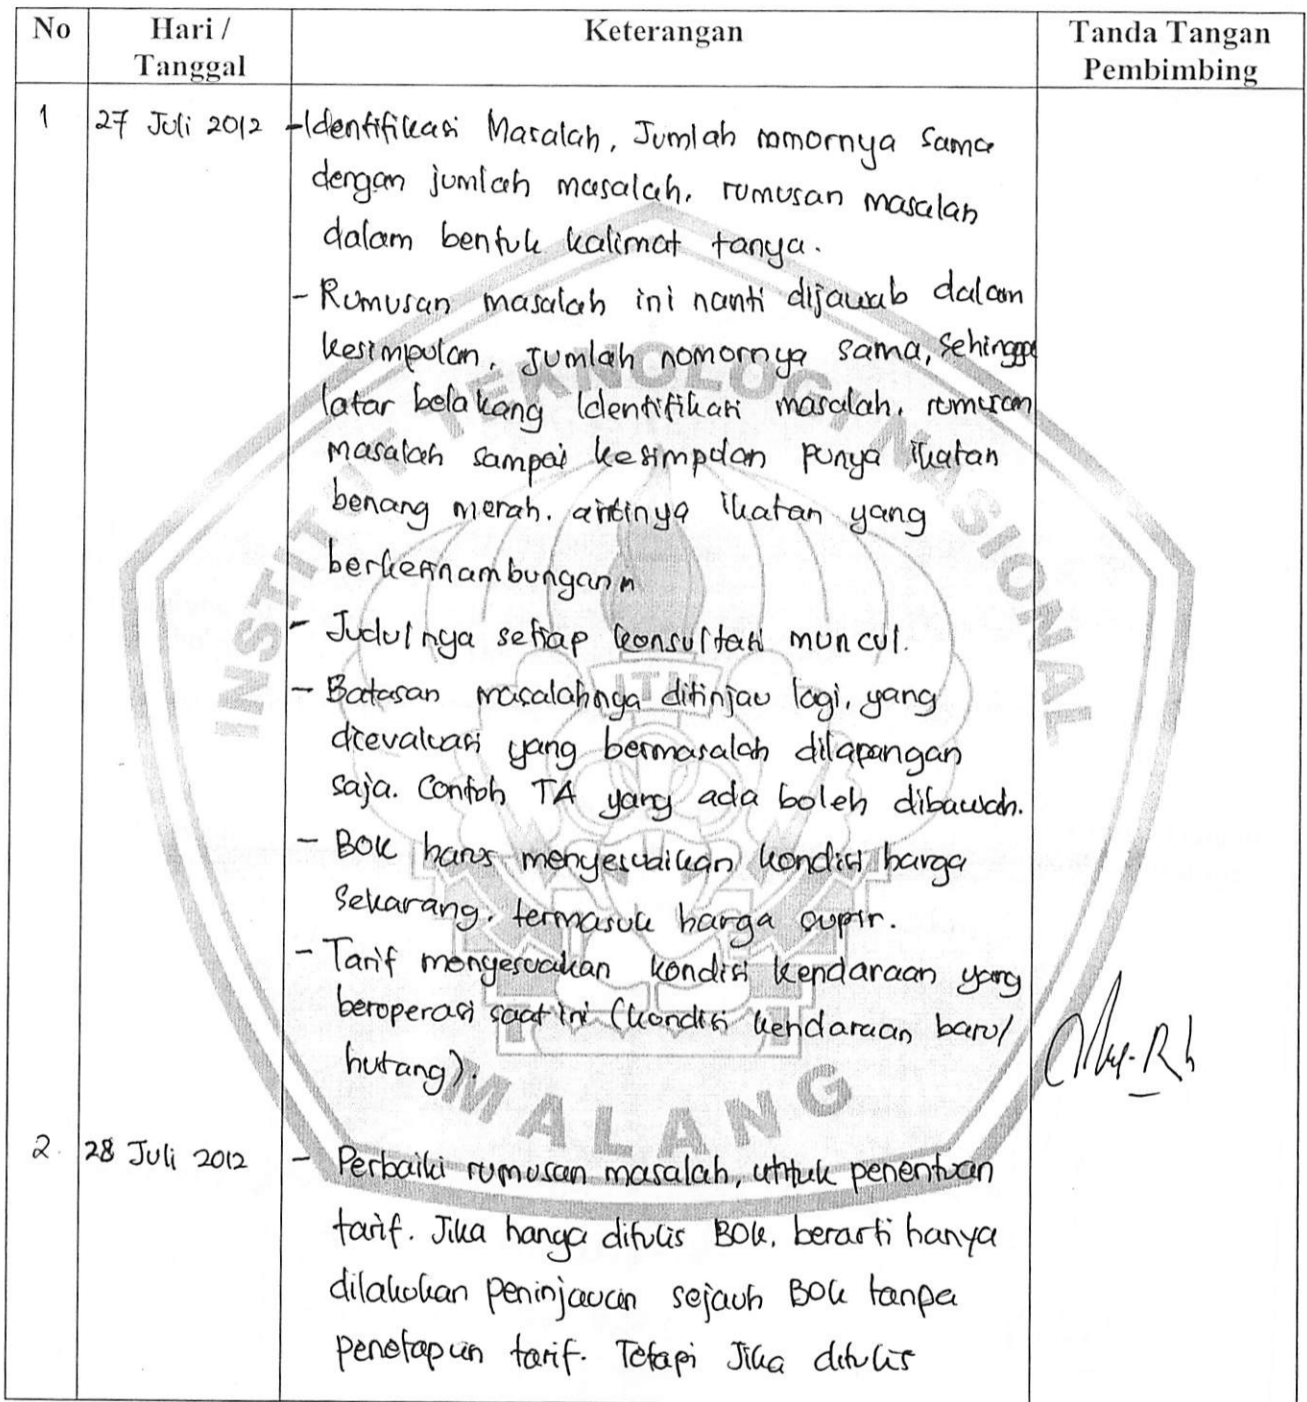 No
Hari /
Tanggal
Keterangan
Tanda Tangan
Pembimbing
1
27 Juli 2012
- Identifikasi Masalah, Jumlah nomornya sama
dengan jumlah masalah, rumusan masalah
dalam bentuk kalimat tanya.
- Rumusan masalah ini nanti dijawab dalam
kesimpulan, Jumlah nomornya sama, sehingga
latar belakang Identifikasi masalah, rumusan
masalah sampai kesimpulan punya ikatan
benang merah. artinya ikatan yang
berkesinambungan
- Judulnya setiap konsultasi muncul.
- Batasan masalahnya ditinjau lagi, yang
dievaluasi yang bermasalah dilapangan
saja. Contoh TA yang ada boleh dibawah.
- BOK harus menyesuaikan kondisi harga
sekarang, termasuk harga supir.
- Tarif menyesuakan kondisi kendaraan yang
beroperasi saat ini (kondisi kendaraan baru/
hutang).
2.
28 Juli 2012
- Perbaiki rumusan masalah, untuk penentuan
tarif. Jika hanga ditulis BOK, berarti hanya
dilakukan peninjauan sejauh BOK tanpa
penetapan tarif. Tetapi Jika ditulis
INSTITUT TEKNOLOGI NASIONAL
ITN
MALANG